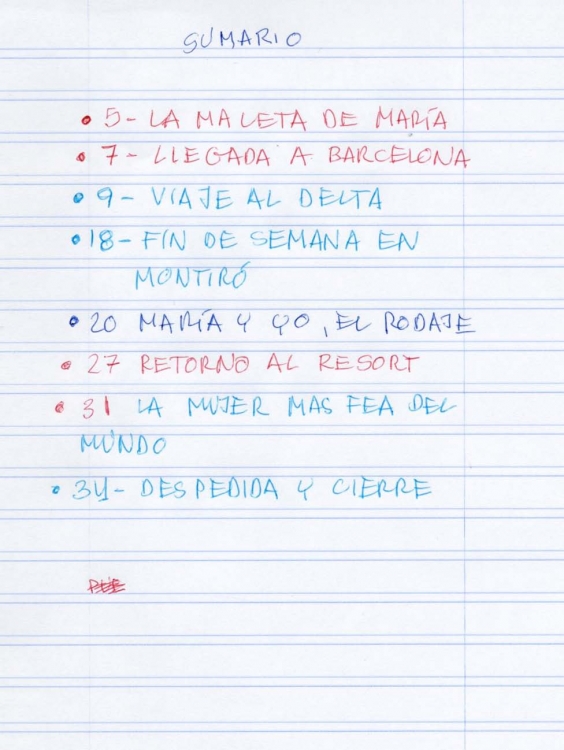 SUMARIO
• 5- LA MALETA DE MARÍA
• 7- LLEGADA A BARCELONA
• 9- VIAJE AL DELTA
• 18- FIN DE SEMANA EN
MONTIRÓ
• 20 MARÍA Y YO, EL RODAJE
• 27 RETORNO AL RESORT
• 31 LA MUJER MAS FEA DEL
MUNDO
• 34- DESPEDIDA Y CIERRE